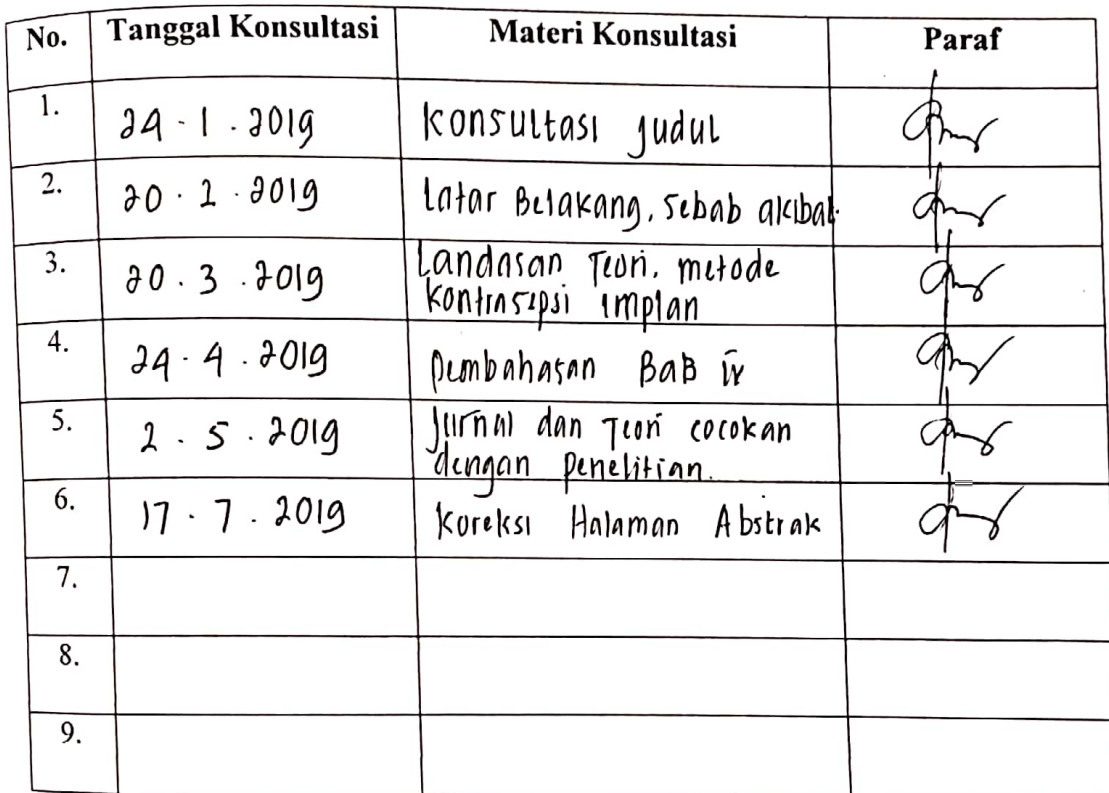 No. Tanggal Konsultasi Materi Konsultasi Paraf
1. 24 - 1 . 2019 Konsultasi Judul
2. 20 . 2 . 2019 Latar Belakang, Sebab akibat.
3. 20 . 3 . 2019 Landasan Teori, metode
Kontrasepsi implan
4. 24 . 4 . 2019 Pembahasan BaB iv
5. 2 . 5 . 2019 Jurnal dan Teori cocokan
dengan Penelitian.
6. 17 . 7 . 2019 Koreksi Halaman Abstrak
7.
8.
9.